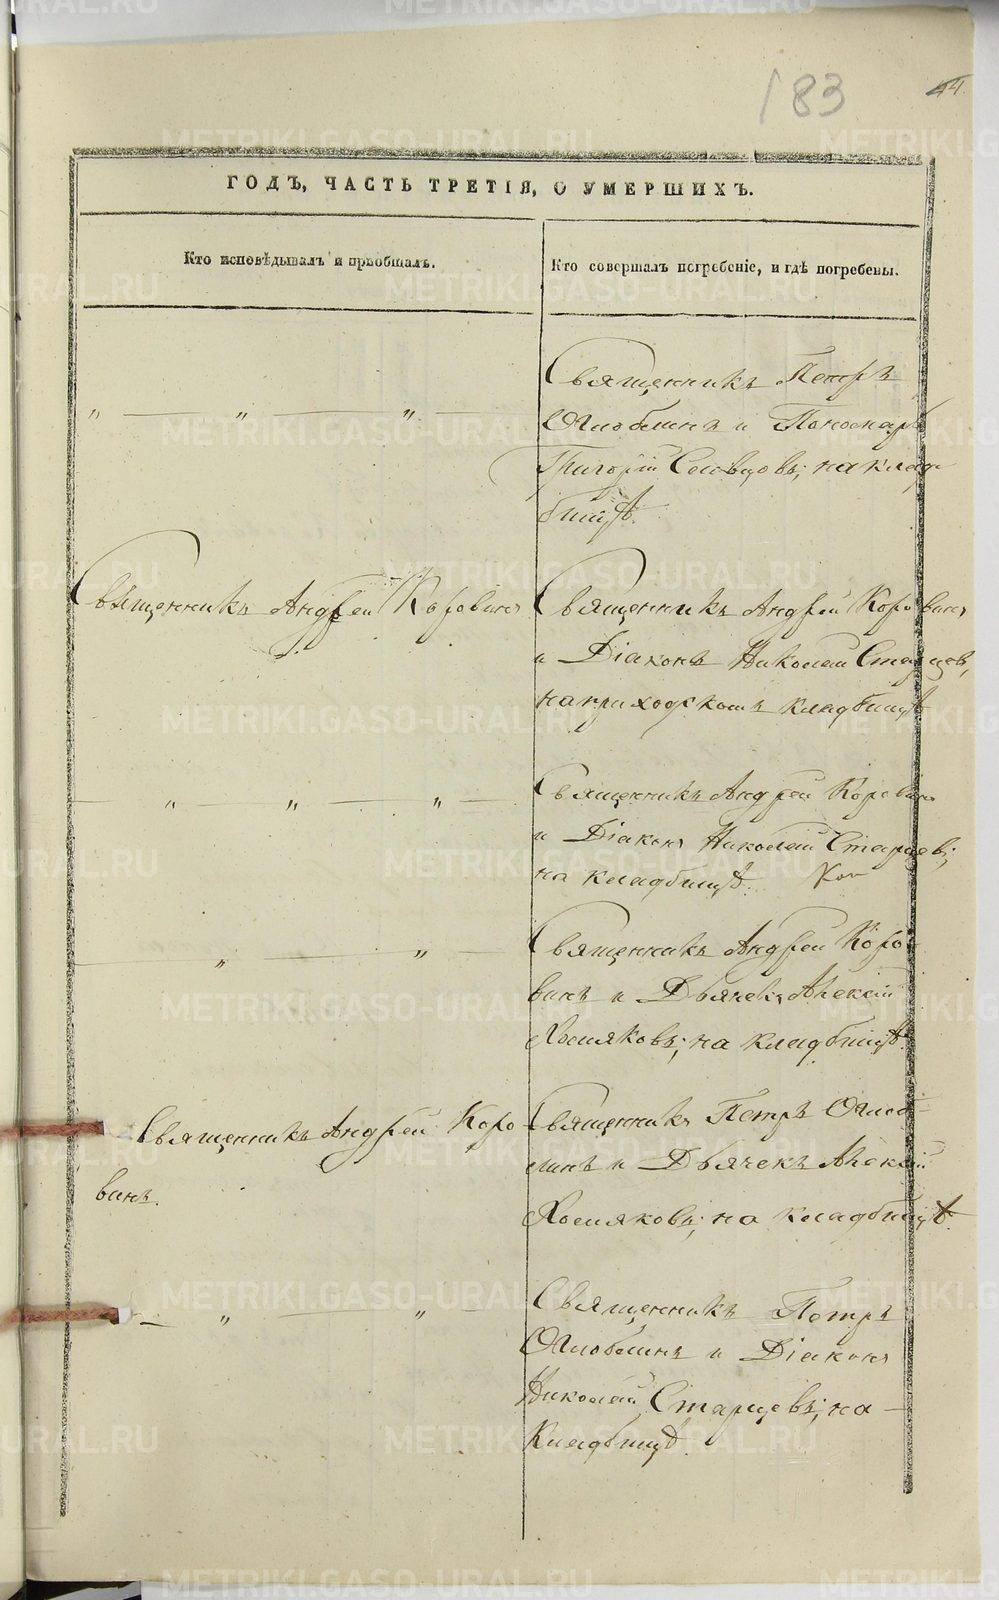 183
44
ГОДЪ, ЧАСТЬ ТРЕТІЯ, О УМЕРШИХЪ.
Кто исповѣдывалъ и пріобщалъ.
Кто совершалъ погребеніе, и гдѣ погребены.
" — " — " —
Священникъ Петръ
Оглоблинъ и Пономарь
Григорій Словцовъ; на клад-
бищѣ.
Священникъ Андрей Коровинъ
Священникъ Андрей Коровинъ
и Діаконъ Николай Старцев,
на приходскомъ кладбищѣ
— " — " — " —
Священникъ Андрей Коровинъ
и Діаконъ Николай Старцев;
на кладбищѣ. Кор
— " — " —
Священникъ Андрей Коро-
винъ и Дьячекъ Алексій
Хомяковъ; на кладбищѣ.
Священникъ Андрей Коро-
винъ.
Священникъ Петръ Оглоб-
линъ и Дьячекъ Алексій
Хомяковъ; на кладбищѣ.
— " — " —
Священникъ Петръ
Оглоблинъ и Діаконъ
Николай Старцевъ; на
кладбищѣ.
METRIKI.GASO-URAL.RU